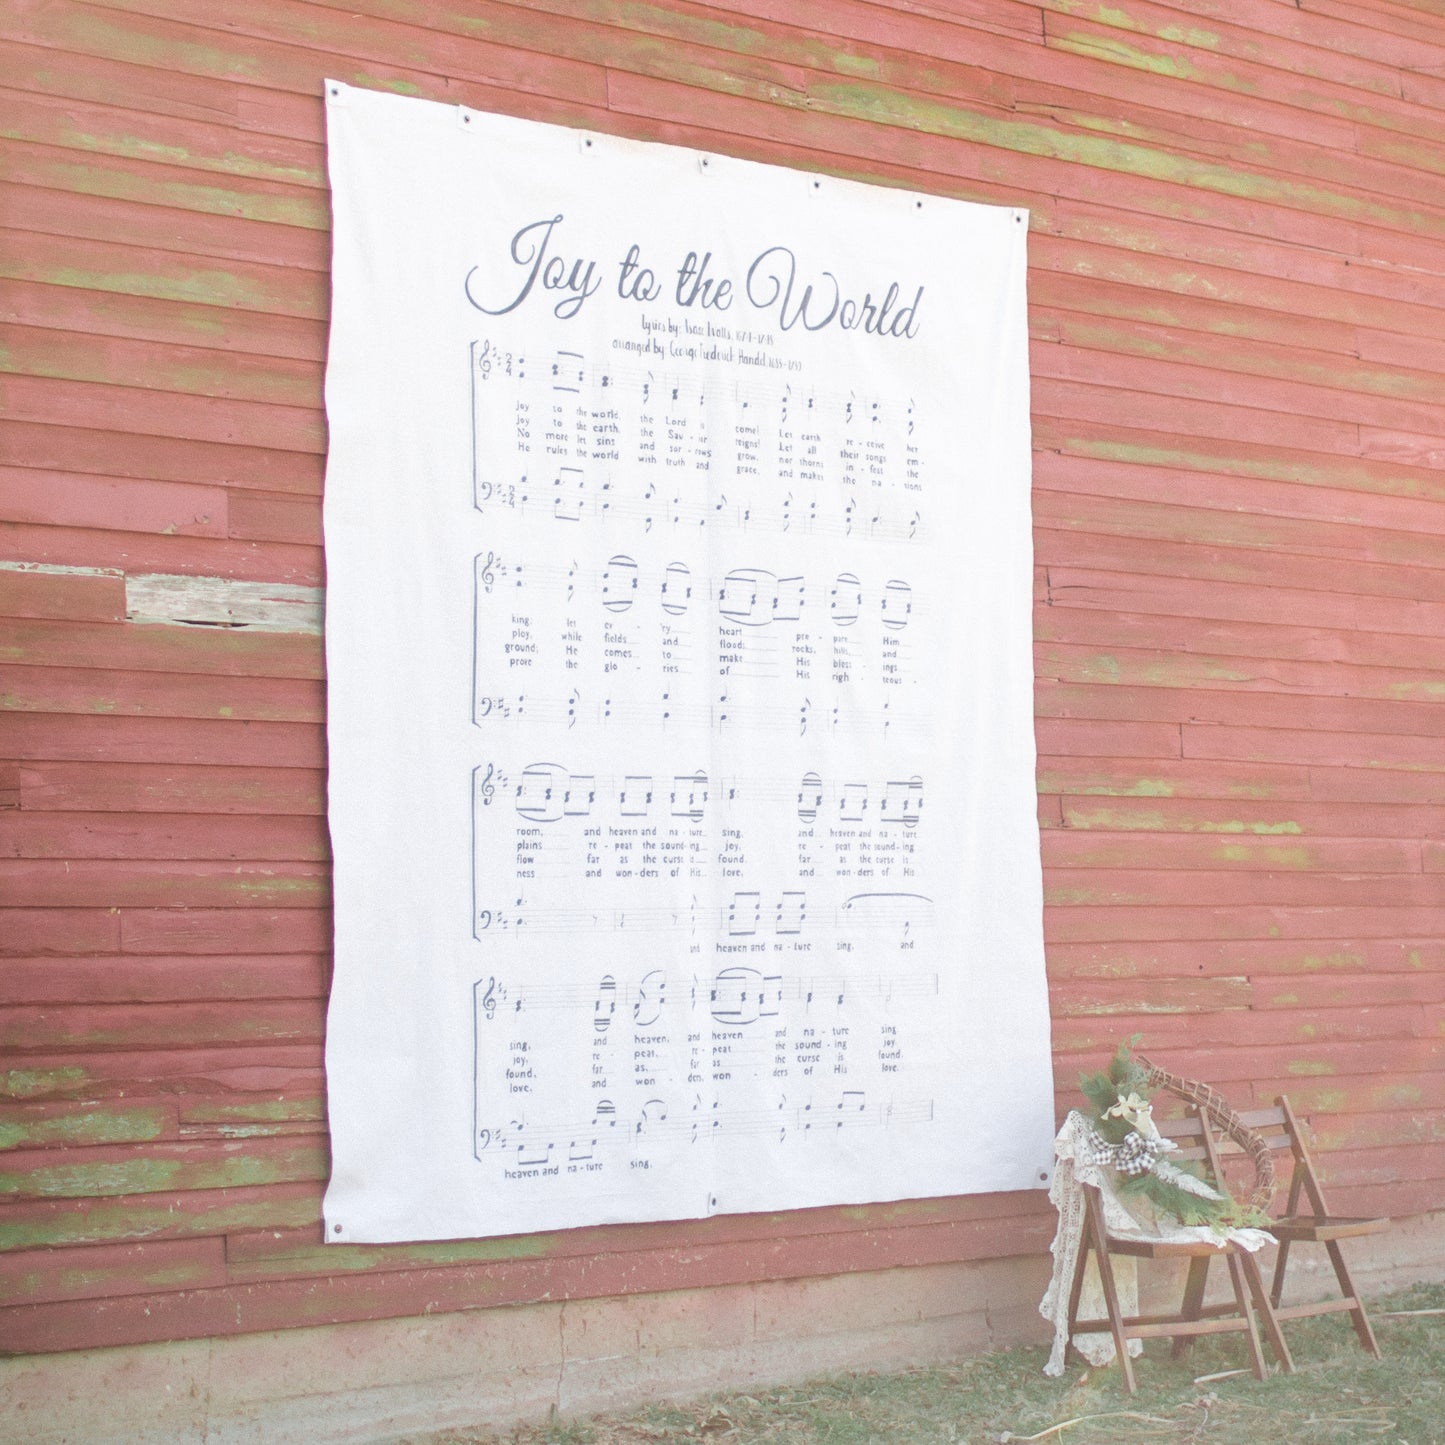 Joy to the World
lyrics by: Isaac Watts, 1674-1748
arranged by: George Frederick Handel 1685-1759
joy to the world, the Lord is come! Let earth re - ceive her
joy to the earth, the Sav - ior reigns! Let all their songs em -
No more let sins and sor - rows grow, nor thorns in - fest the
He rules the world with truth and grace, and makes the na - tions
king; let ev - 'ry heart pre - pare Him
ploy, while fields and floods; rocks, hills, and
ground; He comes to make His bless - ings
prove the glo - ries of His righ - teous -
room, and heaven and na - ture sing, and heaven and na - ture
plains re - peat the sound-ing joy, re - peat the sound-ing
flow far as the curse is found, far as the curse is
ness and won - ders of His love, and won - ders of His
and heaven and na - ture sing, and
sing, and heaven, and heaven and na - ture sing.
joy, re - peat, re - peat the sound - ing joy.
found, far as, far as the curse is found.
love, and won - ders, won - ders of His love.
heaven and na - ture sing.